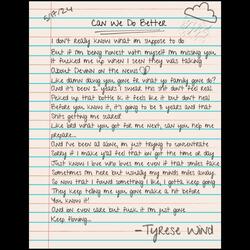 5/17/24
Can We Do Better
I don't really know what I'm suppose to do
But if I'm being honest with myself I'm missing you
It fucked me up when I seen they was talking
About Devann on the news
Like damn dawg you gone fr what yo family gone do?
And it's been 2 years I swear this shit don't feel real
Picked up that bottle ik it feels like it but don't heal
Before you know it, it's going to be 5 years and that
Shit's getting me scared
Like God what you got for me next, can you help me
prepare...
And I've been all alone, I'm just trying to concentrate
Sorry if I make y'all feel that on got the time of day
Just know I love who love me even if that smiles fake
Sometimes I'm here but usually my minds miles away.
So now that I found something I like, I gotta keep going
They keep telling me you gone make a hit before
You know it!
And on even care but fuck it I'm just gone
Keep flowing...
-Tyrese Wind